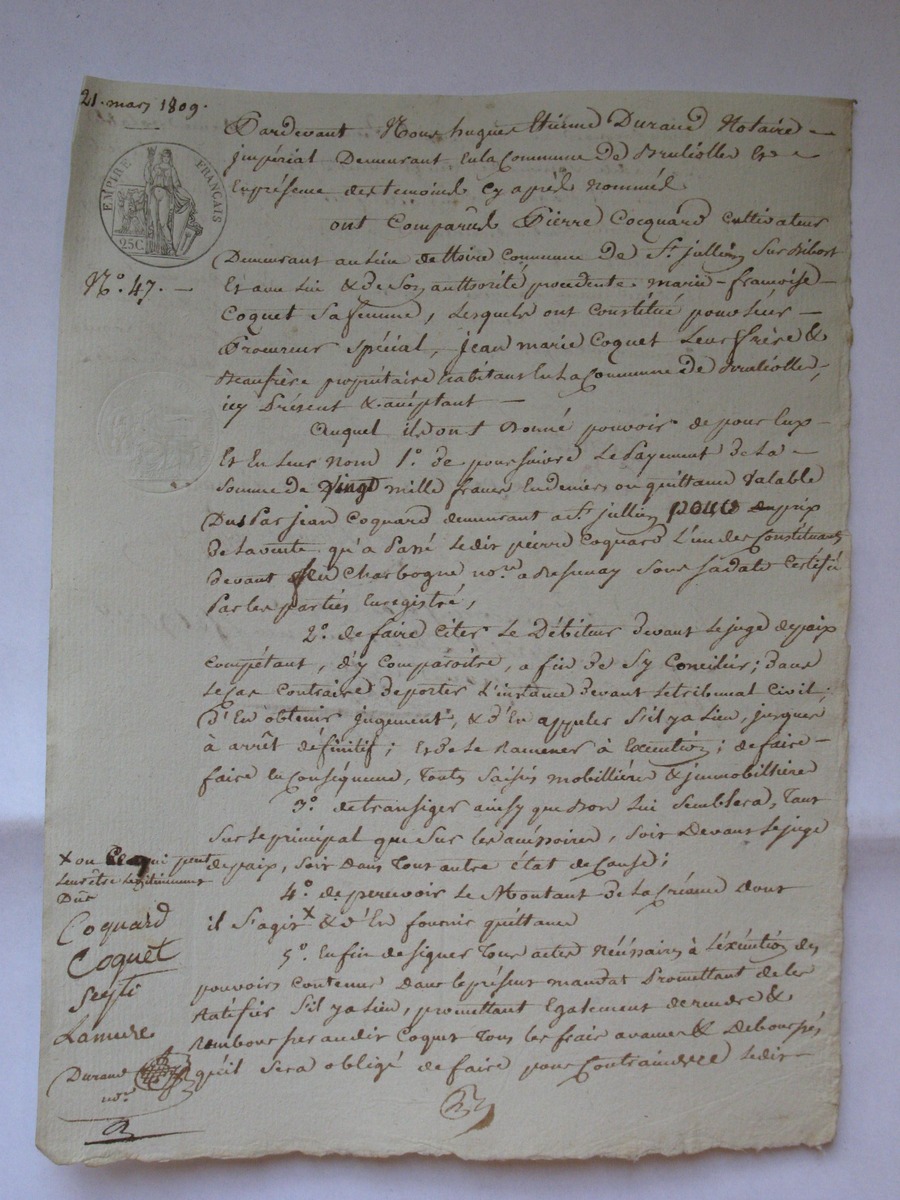 21. mars 1809.
EMPIRE FRANÇAIS
25C
N°. 47. —
Pardevant Nous hugues Etienne Durand Notaire —
imperial Demeurant En la Commune De Bruliolle Et —
En présence des temoins Cy après nommés
ont Comparus Pierre Cocquard Cultivateur
Demeurant au lieu de Commune de St. jullien Sur Bibost
Et avec lui & de Son authorité procedente marie-françoise —
Coquet Sa femme, lesquels ont Constitué pour leur —
Procureur Spécial, jean marie Coquet Leur frère &
Beaufrère propriétaire habitant En La Commune de Brulliolle,
icy Présent & aceptant —
Auquel ils ont Donné pouvoir de pour Eux —
Et En leur Nom 1°. de poursuivre Le Payement de La —
Somme de vingt mille francs En deniers ou quittance Valable
Dus Par jean Coquard demeurant a St. jullien pour prix
De la vente qu'a Passé Ledit pierre Coquard L'un des Constituants
devant Charbogne nore. a Sous Sa date Certifié
Par les parties Enregistré,
2°. de faire Citer Le Débiteur devant le juge de paix
Compétant, d'y Comparoître, a fin de S'y Concilier; dans
Le Cas Contraire de porter L'instance devant le tribunal Civil,
d'En obtenir jugement, & d'En appeler S'il y a Lieu, jusques
à arrêt définitif; Et de Le Ramener à Exécution; de faire —
faire En Conséquence, Touts Saisies mobillière & jmmobilhière
3°. de transiger ainsy que Bon Lui Semblera, Tant
Sur le principal que Sur les accéssoires, Soit Devant Le juge
de paix, Soit Dans Tout autre état de Cause;
4°. de percevoir Le Montant De La Créance dont
il S'agit x & d'En fournir quittance
5°. Enfin de Signer Tous actes Nécéssaires à L'éxécution des
pouvoirs Contenus dans le présent mandat Promettant de les
Ratifier S'il y a Lieu, promettant Egalement de rendre &
rembourser audit Coquet Tous les frais avances & Deboursés
qu'il Sera obligé de faire pour Contraindre Ledit —
x ou qui peut
Leur être Legitimement
Dus
Coquard
Coquet
Lamure
Durand
nore.